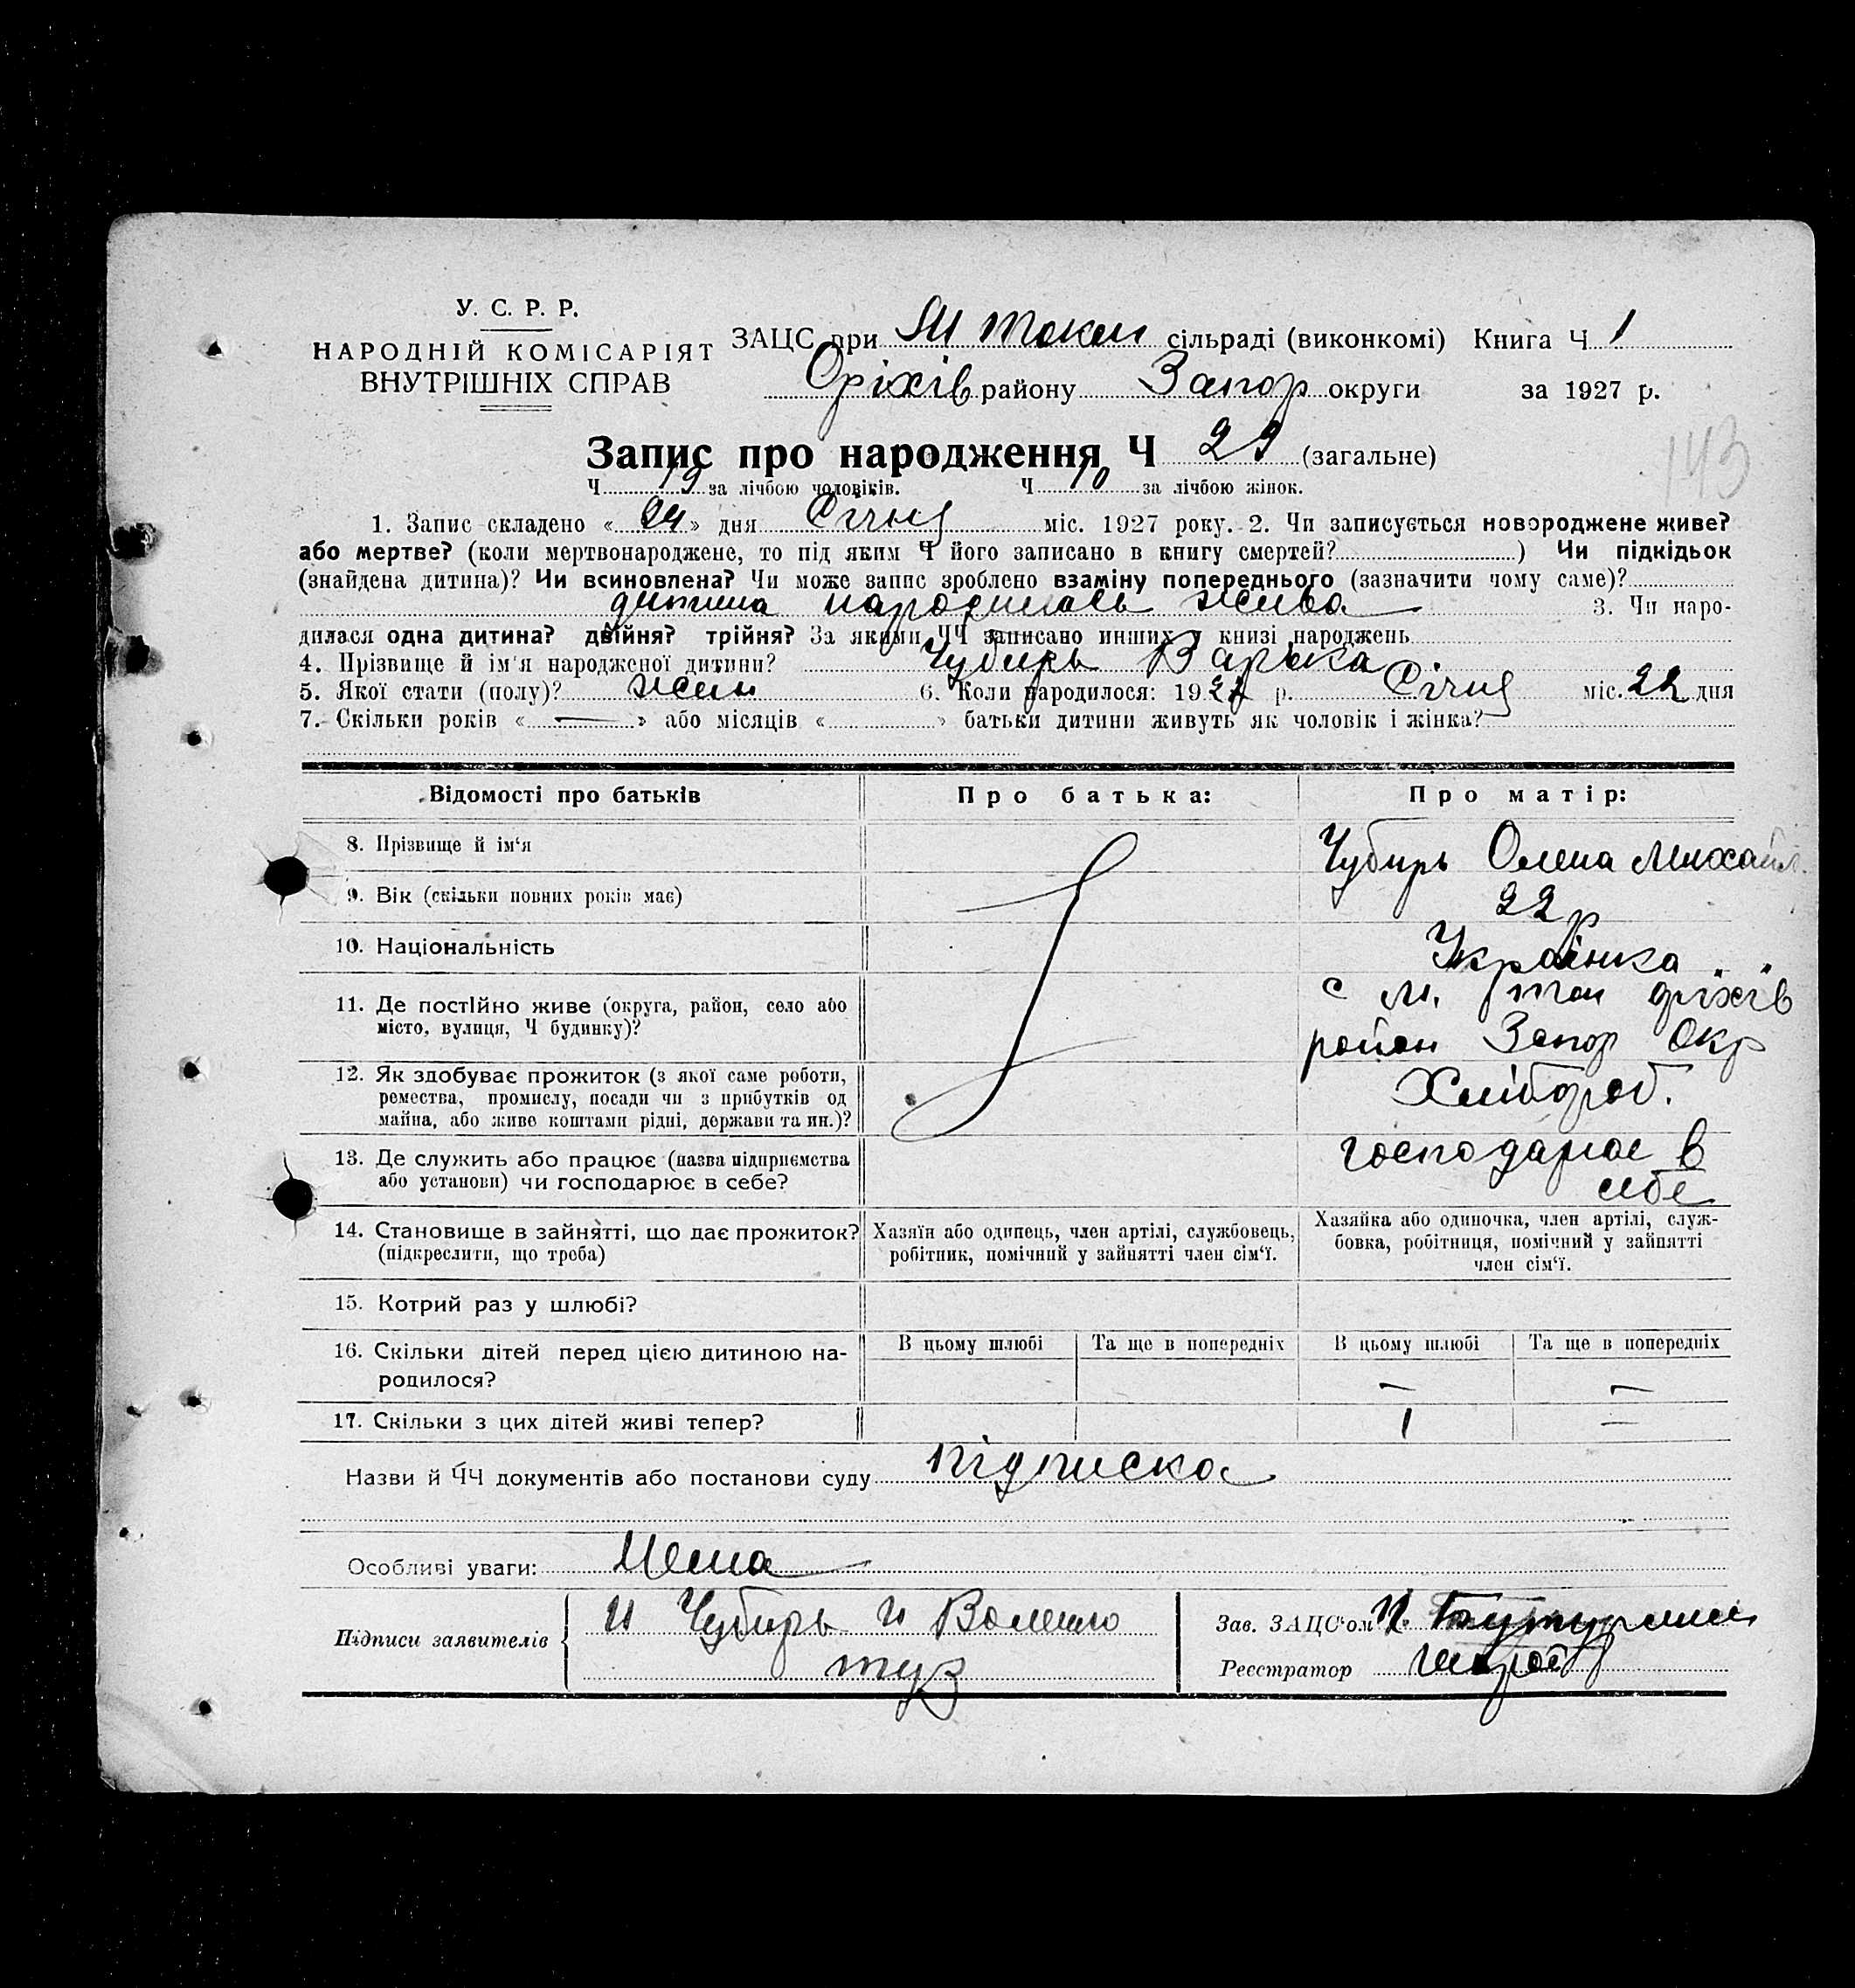 У. С. Р. Р.
НАРОДНІЙ КОМІСАРІЯТ
ВНУТРІШНІХ СПРАВ
ЗАЦС при М Токм сільраді (виконкомі) Книга Ч 1
Оріхів району Запор округи за 1927 р.
143
Запис про народження Ч 29 (загальне)
Ч 19 за лічбою чоловіків. Ч 10 за лічбою жінок.
1. Запис складено « 24 » дня Січня міс. 1927 року. 2. Чи записується новороджене живе?
або мертве? (коли мертвонароджене, то під яким Ч його записано в книгу смертей? ) Чи підкідьок
(знайдена дитина)? Чи всиновлена? Чи може запис зроблено взаміну попереднього (зазначити чому саме)?
дитина народилась жива 3. Чи наро-
дилася одна дитина? двійня? трійня? За якими ЧЧ записано инших у книзі народжень
4. Прізвище й ім'я народженої дитини? Чубирь Варька
5. Якої стати (полу)? жін 6. Коли народилося: 1927 р. Січня міс. 22 дня
7. Скільки років « — » або місяців « » батьки дитини живуть як чоловік і жінка?
Відомості про батьків Про батька: Про матір:
8. Прізвище й ім'я Чубирь Олена Михайл.
9. Вік (скільки повних років має) 22 р
10. Національність Українка
11. Де постійно живе (округа, район, село або
місто, вулиця, Ч будинку)?
с М. Ток Оріхів
район Запор Окр
12. Як здобуває прожиток (з якої саме роботи,
ремества, промислу, посади чи з прибутків од
майна, або живе коштами рідні, держави та ин.)?
Хлібороб.
13. Де служить або працює (назва підприємства
або установи) чи господарює в себе?
господарює в
себе
14. Становище в зайнятті, що дає прожиток?
(підкреслити, що треба)
Хазяїн або одинець, член артілі, службовець,
робітник, помічний у зайнятті член сім'ї.
Хазяйка або одиночка, член артілі, служ-
бовка, робітниця, помічний у зайнятті
член сім'ї.
15. Котрий раз у шлюбі?
16. Скільки дітей перед цією дитиною на-
родилося?
В цьому шлюбі Та ще в попередніх В цьому шлюбі Та ще в попередніх
— —
17. Скільки з цих дітей живі тепер? 1 —
Назви й ЧЧ документів або постанови суду підписка
Особливі уваги: Нема
Підписи заявителів и Чубирь и
Зав. ЗАЦС'ом
Реєстратор